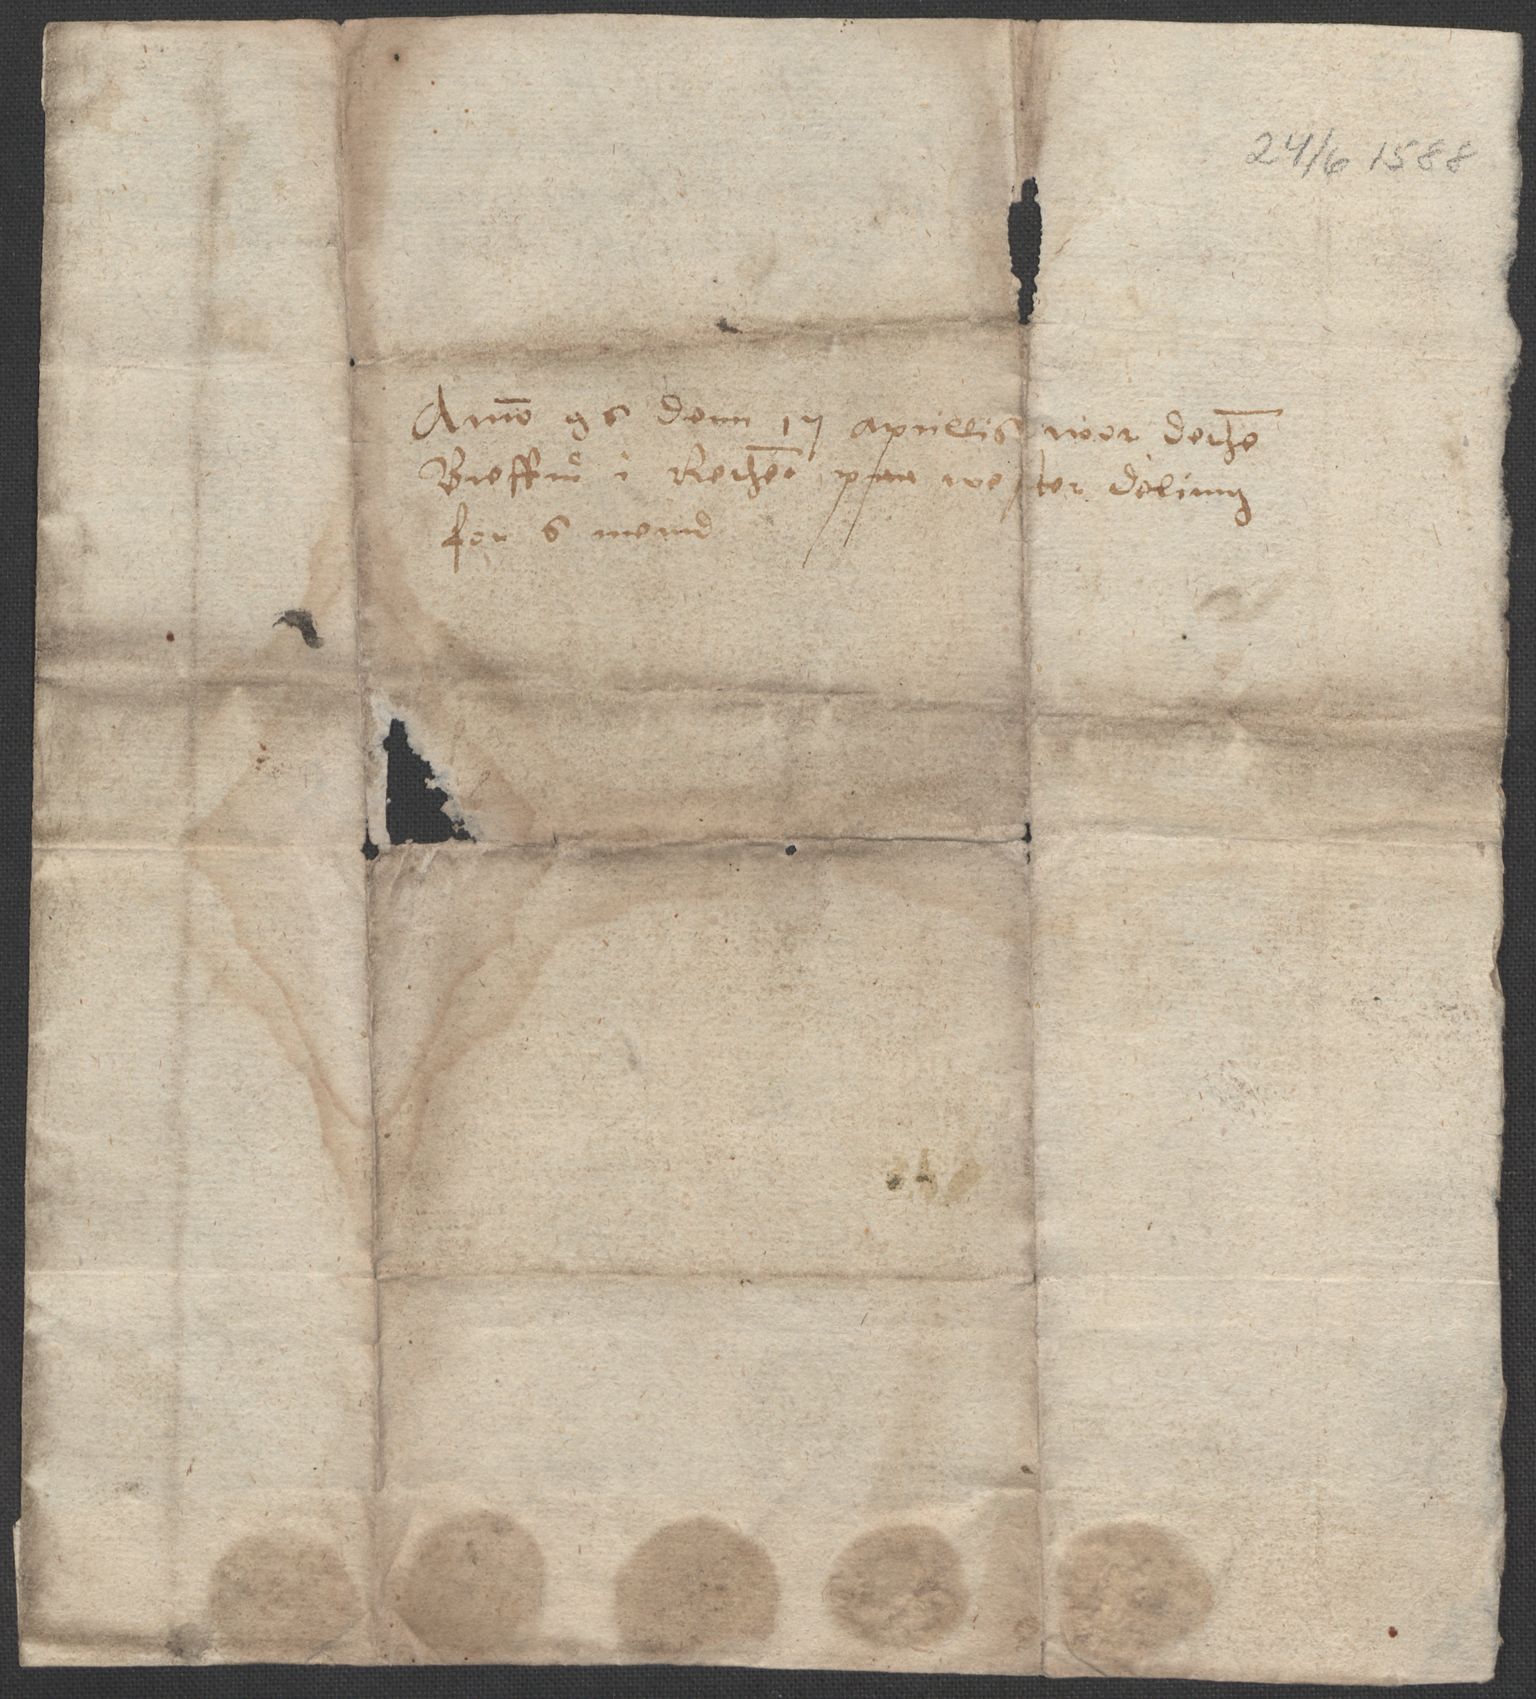 24/6 1588
Anno 96 denn 17 aprillis wor dethe
Breff i Rethe paa wester deling
for 6 mend